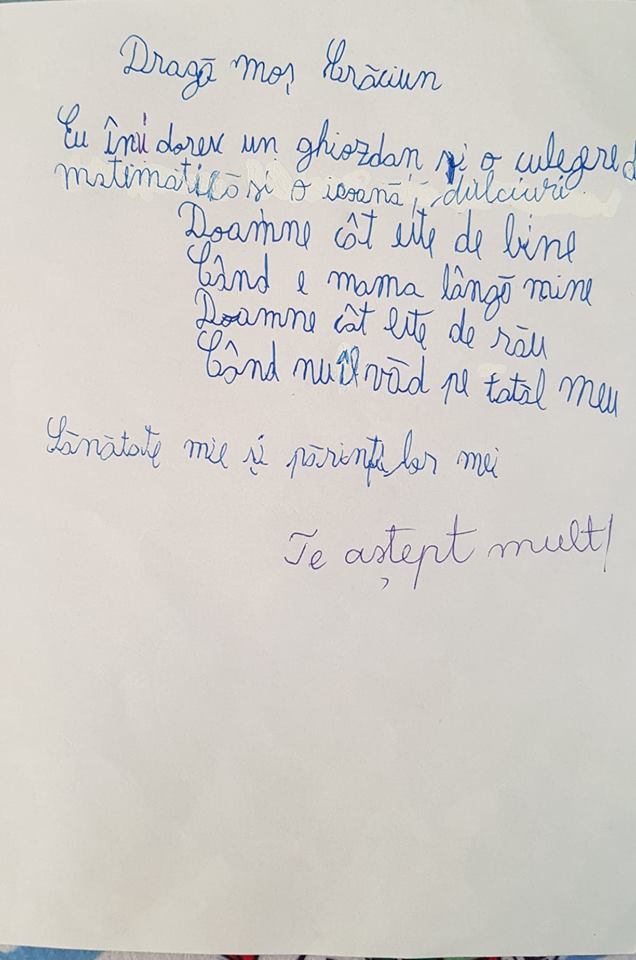 Dragă moș Crăciun
Eu îmi doresc un ghiozdan și o culegere d
matematică și o icoană, dulciuri
Doamne cât este de bine
Când e mama lângă mine
Doamne cât este de rău
Când nu îl văd pe tatăl meu
Sănătate mie și părinților mei
Te aștept mult!